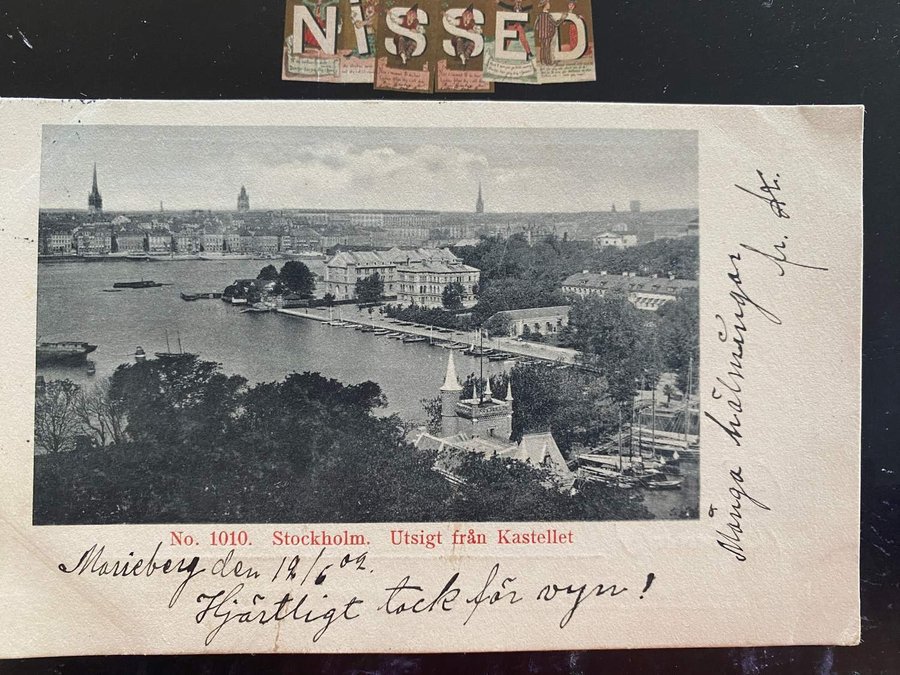 NISSED
No. 1010. Stockholm. Utsigt från Kastellet
Marieberg den 12/6 02.
Hjärtligt tack för vyn!
Många hälsningar
fr.